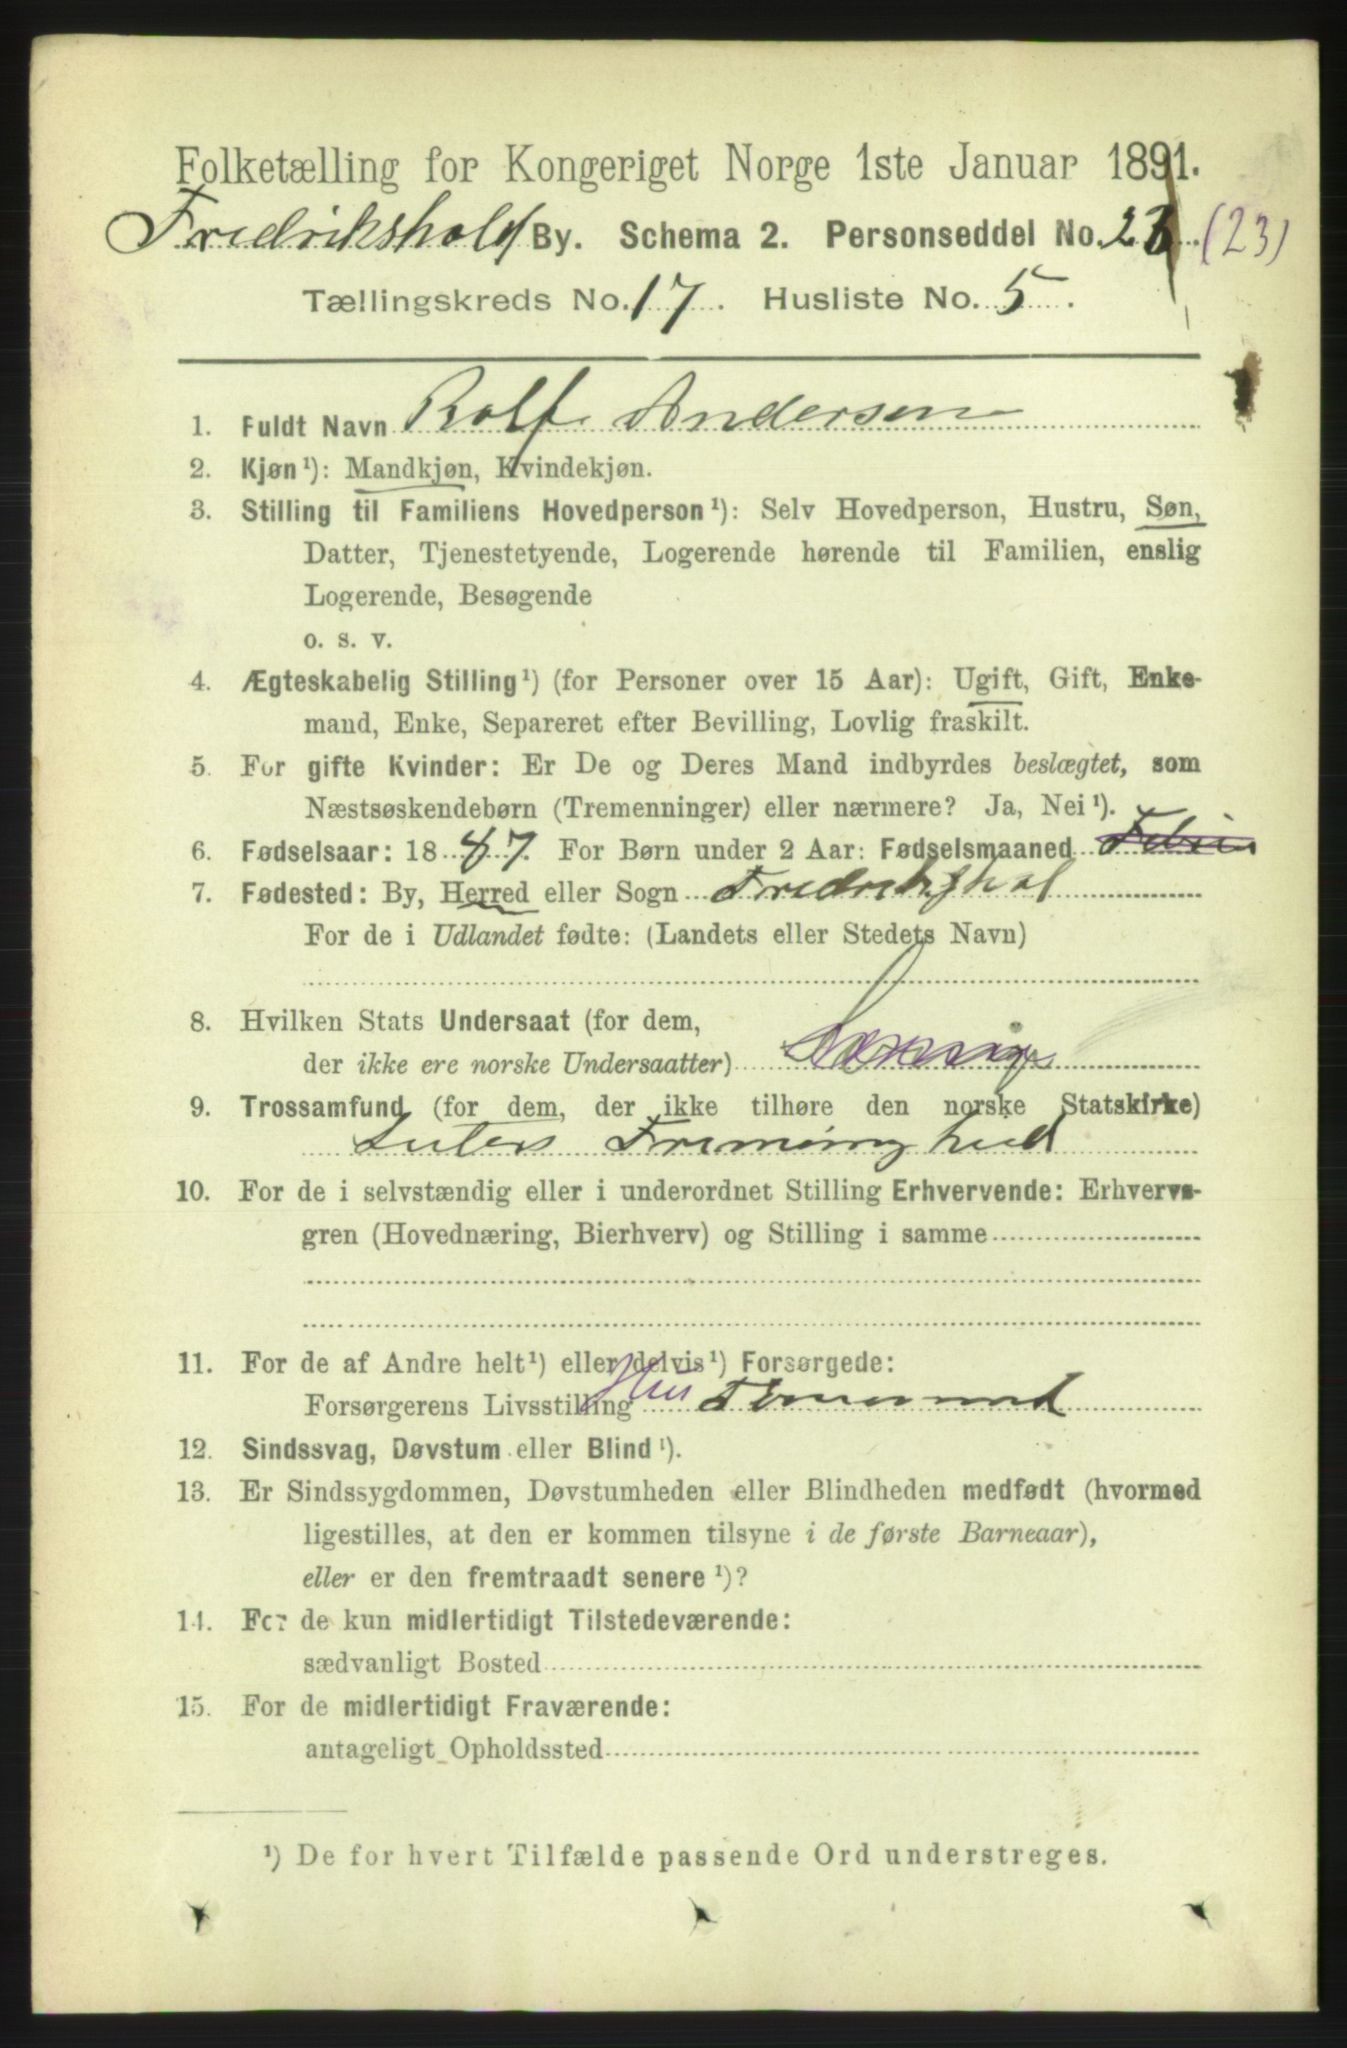 Folketælling for Kongeriget Norge 1ste Januar 1891.
Fredrikshald By. Schema 2. Personseddel No. 23 (23)
Tællingskreds No. 17. Husliste No. 5.
1. Fuldt Navn Rolf Andersen
2. Kjøn¹): Mandkjøn, Kvindekjøn.
3. Stilling til Familiens Hovedperson¹): Selv Hovedperson, Hustru, Søn,
Datter, Tjenestetyende, Logerende hørende til Familien, enslig
Logerende, Besøgende
o. s. v.
4. Ægteskabelig Stilling¹) (for Personer over 15 Aar): Ugift, Gift, Enke-
mand, Enke, Separeret efter Bevilling, Lovlig fraskilt.
5. For gifte Kvinder: Er De og Deres Mand indbyrdes beslægtet, som
Næstsøskendebørn (Tremenninger) eller nærmere? Ja, Nei¹).
6. Fødselsaar: 1887. For Børn under 2 Aar: Fødselsmaaned
7. Fødested: By, Herred eller Sogn Fredrikshal
For de i Udlandet fødte: (Landets eller Stedets Navn)
8. Hvilken Stats Undersaat (for dem,
der ikke ere norske Undersaatter)
9. Trossamfund (for dem, der ikke tilhøre den norske Statskirke)
Luters Frimenighed
10. For de i selvstændig eller i underordnet Stilling Erhvervende: Erhvervs-
gren (Hovednæring, Bierhverv) og Stilling i samme
11. For de af Andre helt¹) eller delvis¹) Forsørgede:
Forsørgerens Livsstilling Hus
12. Sindssvag, Døvstum eller Blind¹).
13. Er Sindssygdommen, Døvstumheden eller Blindheden medfødt (hvormed
ligestilles, at den er kommen tilsyne i de første Barneaar),
eller er den fremtraadt senere¹)?
14. For de kun midlertidigt Tilstedeværende:
sædvanligt Bosted
15. For de midlertidigt Fraværende:
antageligt Opholdssted
¹) De for hvert Tilfælde passende Ord understreges.